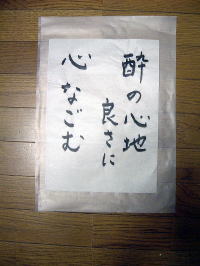 酔の心地
良さに
心なごむ